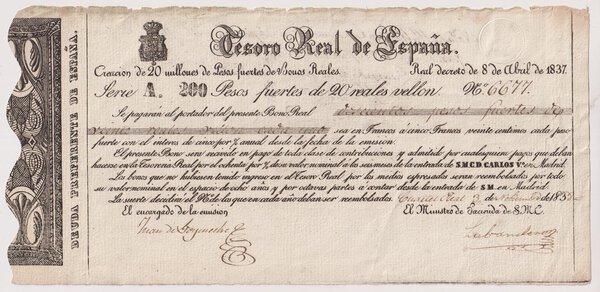 DEUDA PREFERENTE DE ESPAÑA.
Tesoro Real de España.
Creacion de 20 millones de Pesos fuertes de Bonos Reales. Real decreto de 8 de Abril de 1837.
Serie A. 200 Pesos fuertes de 20 reales vellon. Nº 6677.
Se pagarán al portador del presente Bono Real doscientos pesos fuertes de
veinte reales vellon cada uno sea en Francos a cinco Francos veinte centimos cada peso
fuerte con el interes de cinco por % anual desde la fecha de la emission.
El presente Bono será recivido en pago de toda clase de contribuciones y admitido por cualesquiera pagos que deban
hacerse en la Tesoreria Real por el ochenta por % de su valor nominal a las seis semanas de la entrada de S.M.C.D. CARLOS V en Madrid
Los bonos que no hubiesen tenido ingreso en el Tesoro Real por los medios espresados serán reembolsados por todo
su valor nominal en el espacio de ocho años y por octavas partes a contar desde la entrada de S.M. en Madrid
La suerte decidirá el Nº de los que en cada año deban ser reembolsados. Cuartel Real 3 de 183
El encargado de la emision El Ministro de Hacienda de S.M.C.
Juan de Goyeneche
Labandero